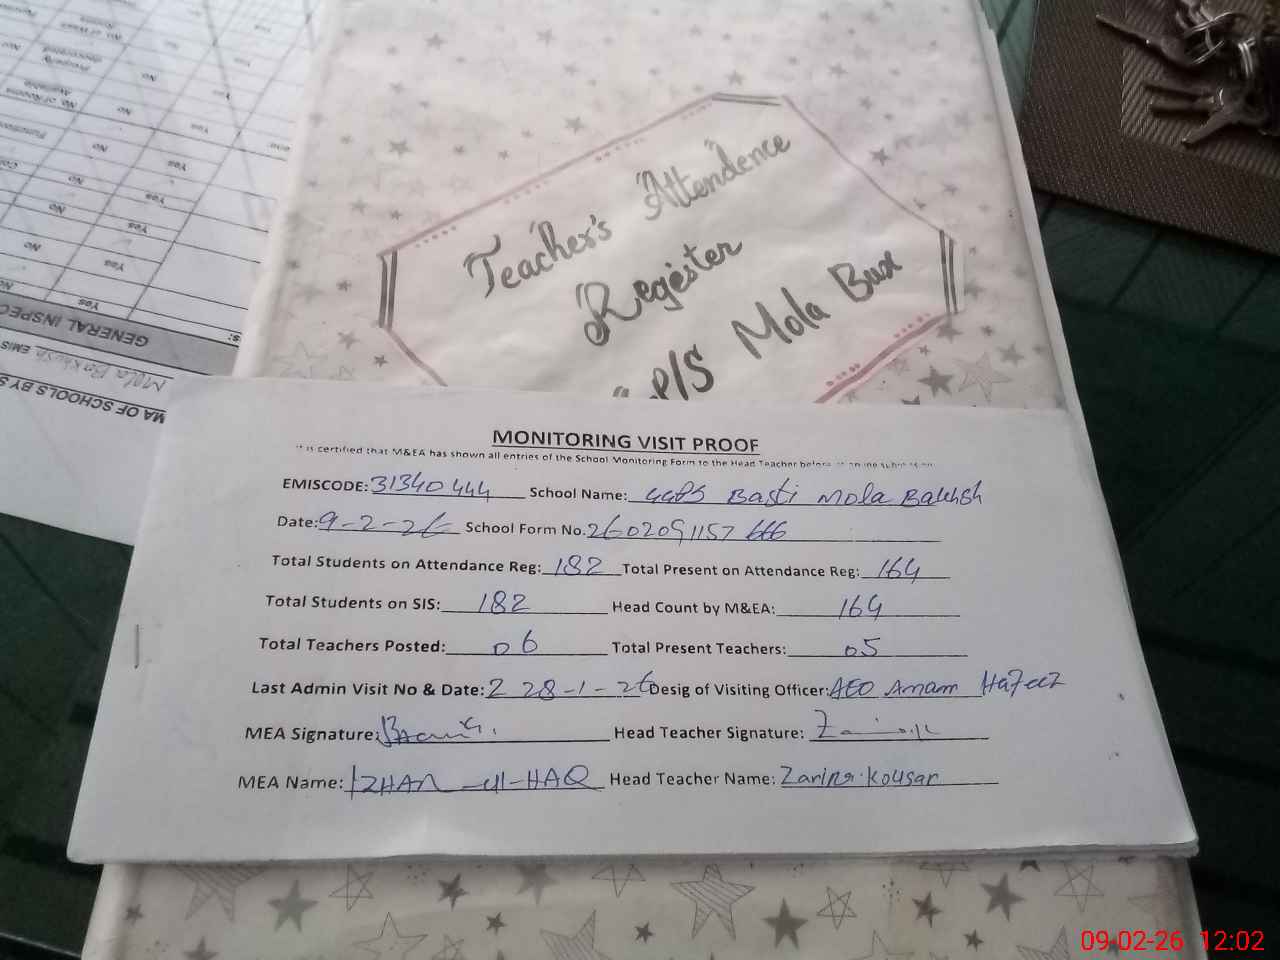 Teacher's Attendence
Regester
P/S Mola Bux
MONITORING VISIT PROOF
is certified that M&EA has shown all entries of the School Monitoring Form to the Head Teacher before
EMISCODE: 31340444 School Name: GGPS Basti Mola Bakhsh
Date: 9-2-26 School Form No. 2602091157666
Total Students on Attendance Reg: 182 Total Present on Attendance Reg: 164
Total Students on SIS: 182 Head Count by M&EA: 164
Total Teachers Posted: 06 Total Present Teachers: 05
Last Admin Visit No & Date: 2 28-1-26 Desig of Visiting Officer: AEO Amam Hafeez
MEA Signature: Head Teacher Signature:
MEA Name: IZHAR-ul-HAQ Head Teacher Name: Zarina Kousar
GENERAL INSPEC
Mola Bakhsh EMIS
MA OF SCHOOLS BY S
09-02-26 12:02